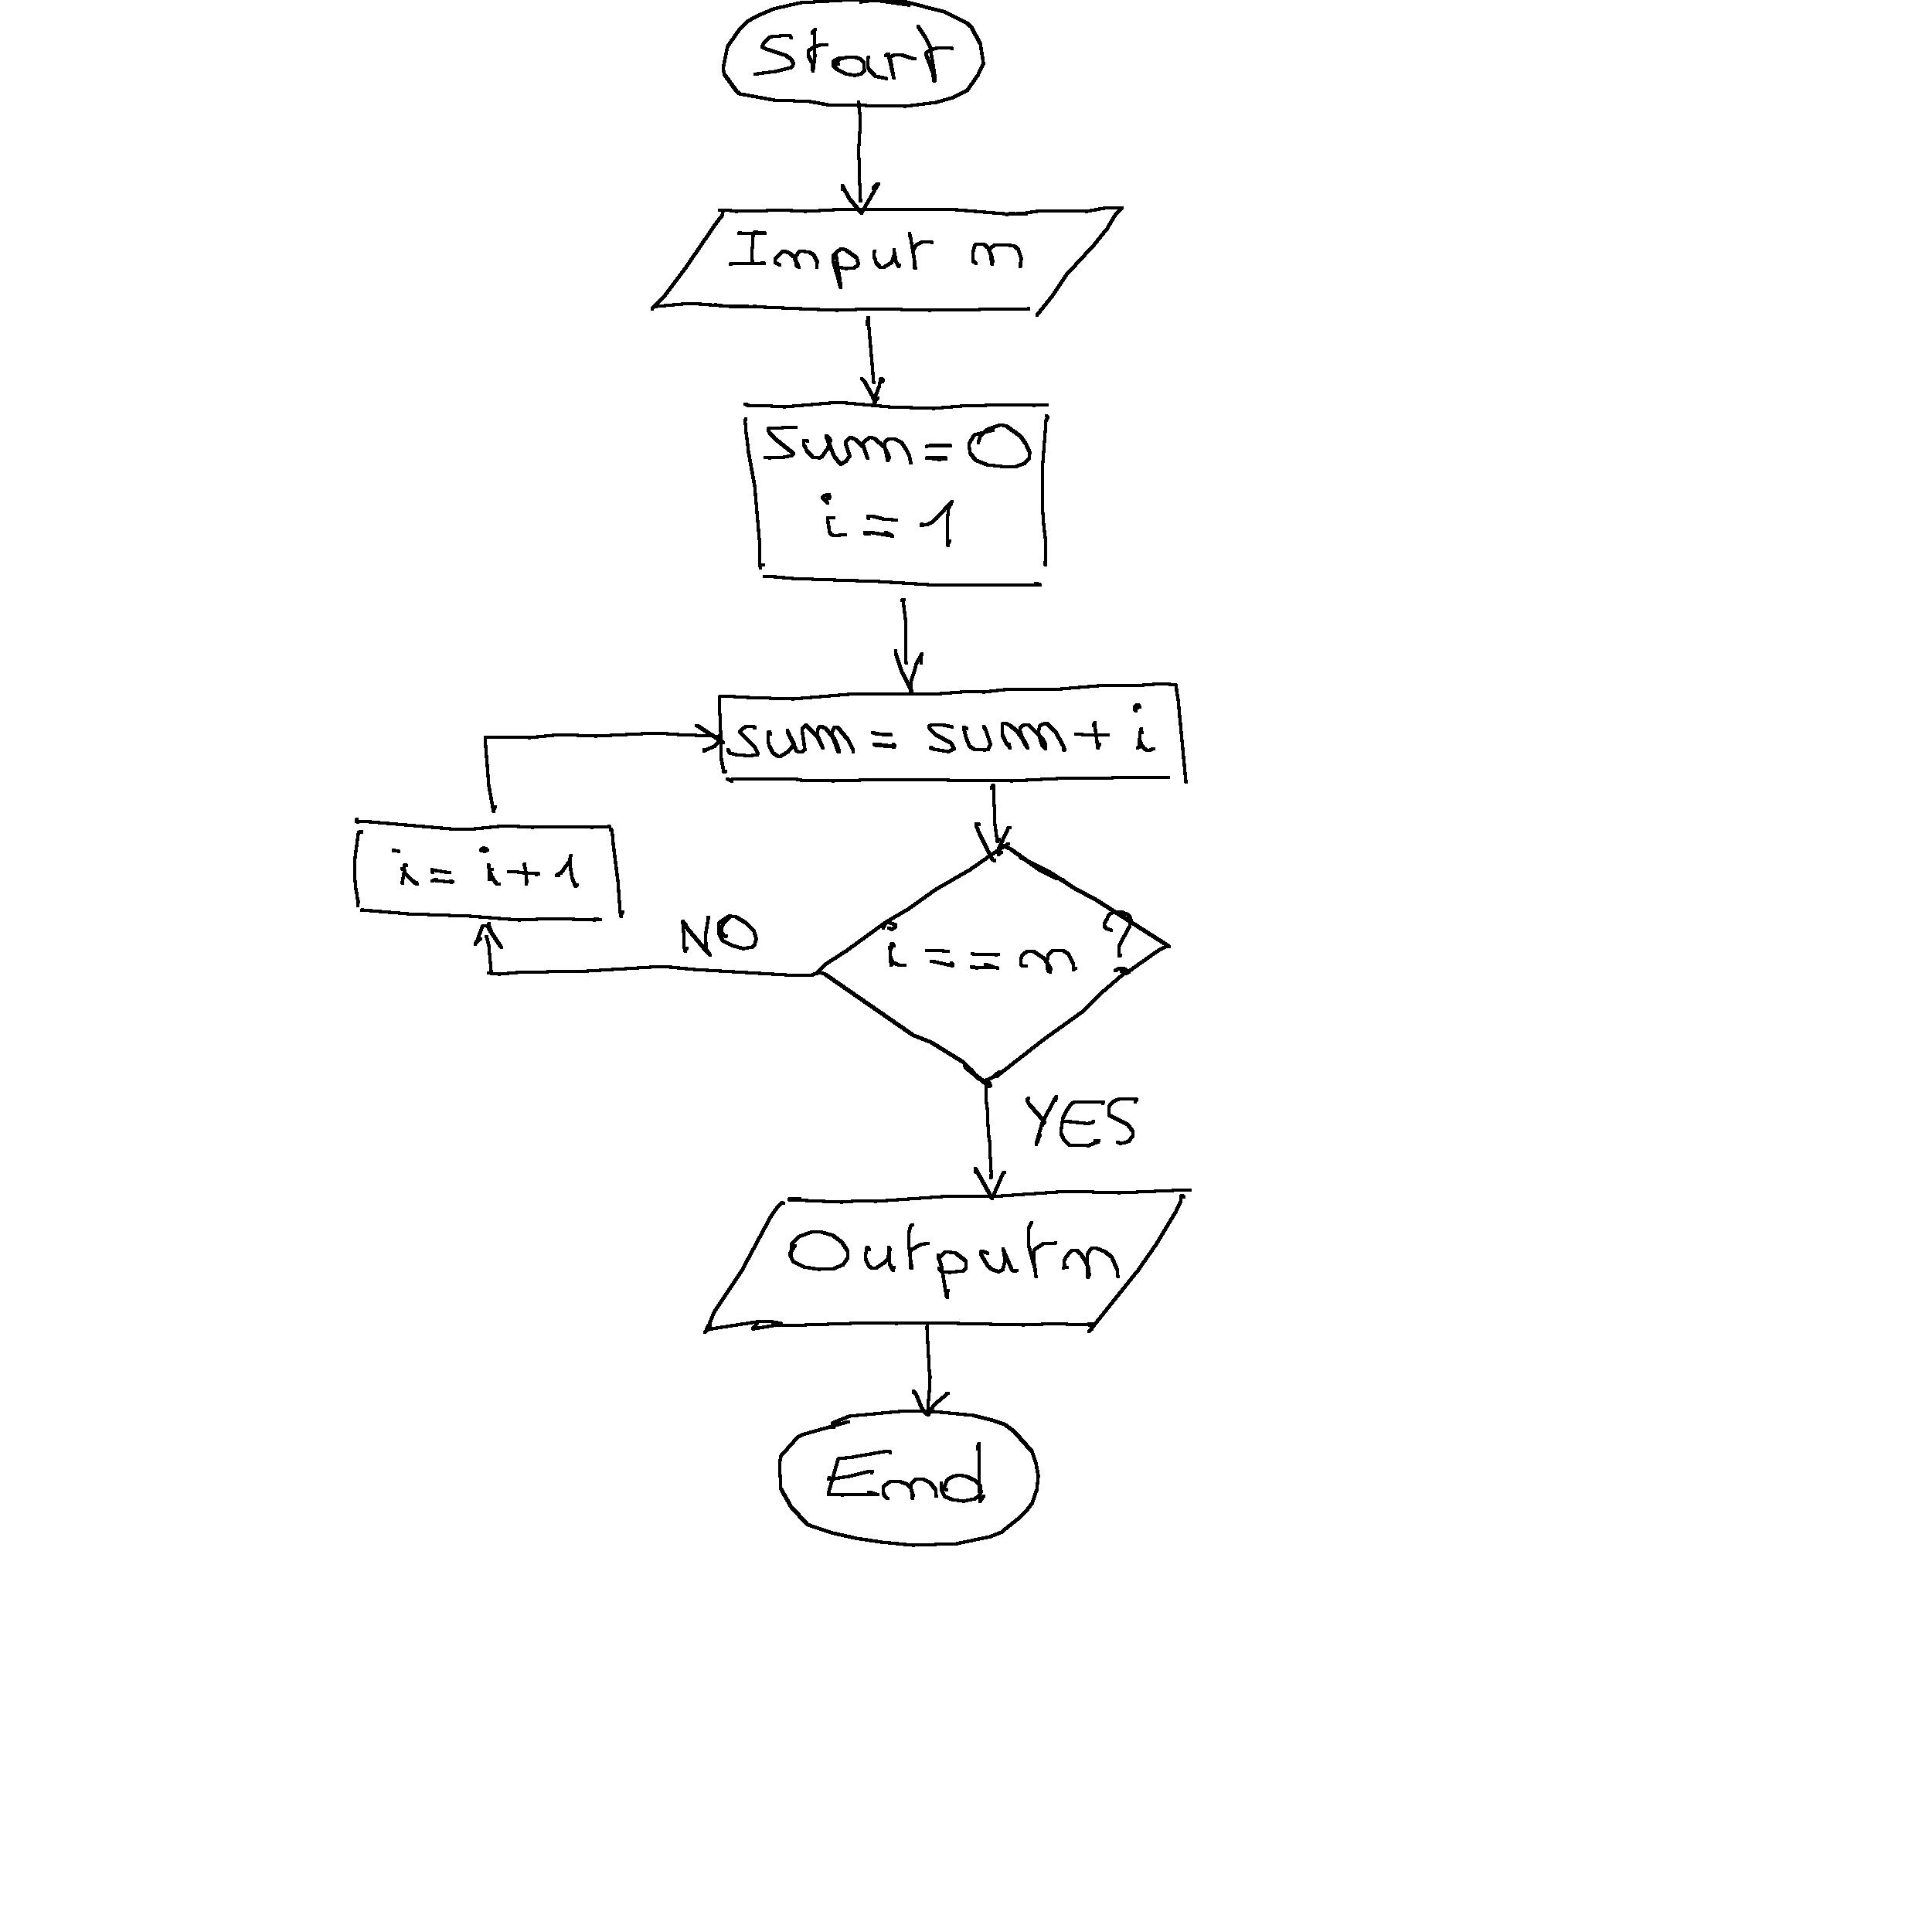 Start
Input n
sum=0
i=1
sum = sum + i
i = i + 1
NO
i == n ?
YES
Output n
End